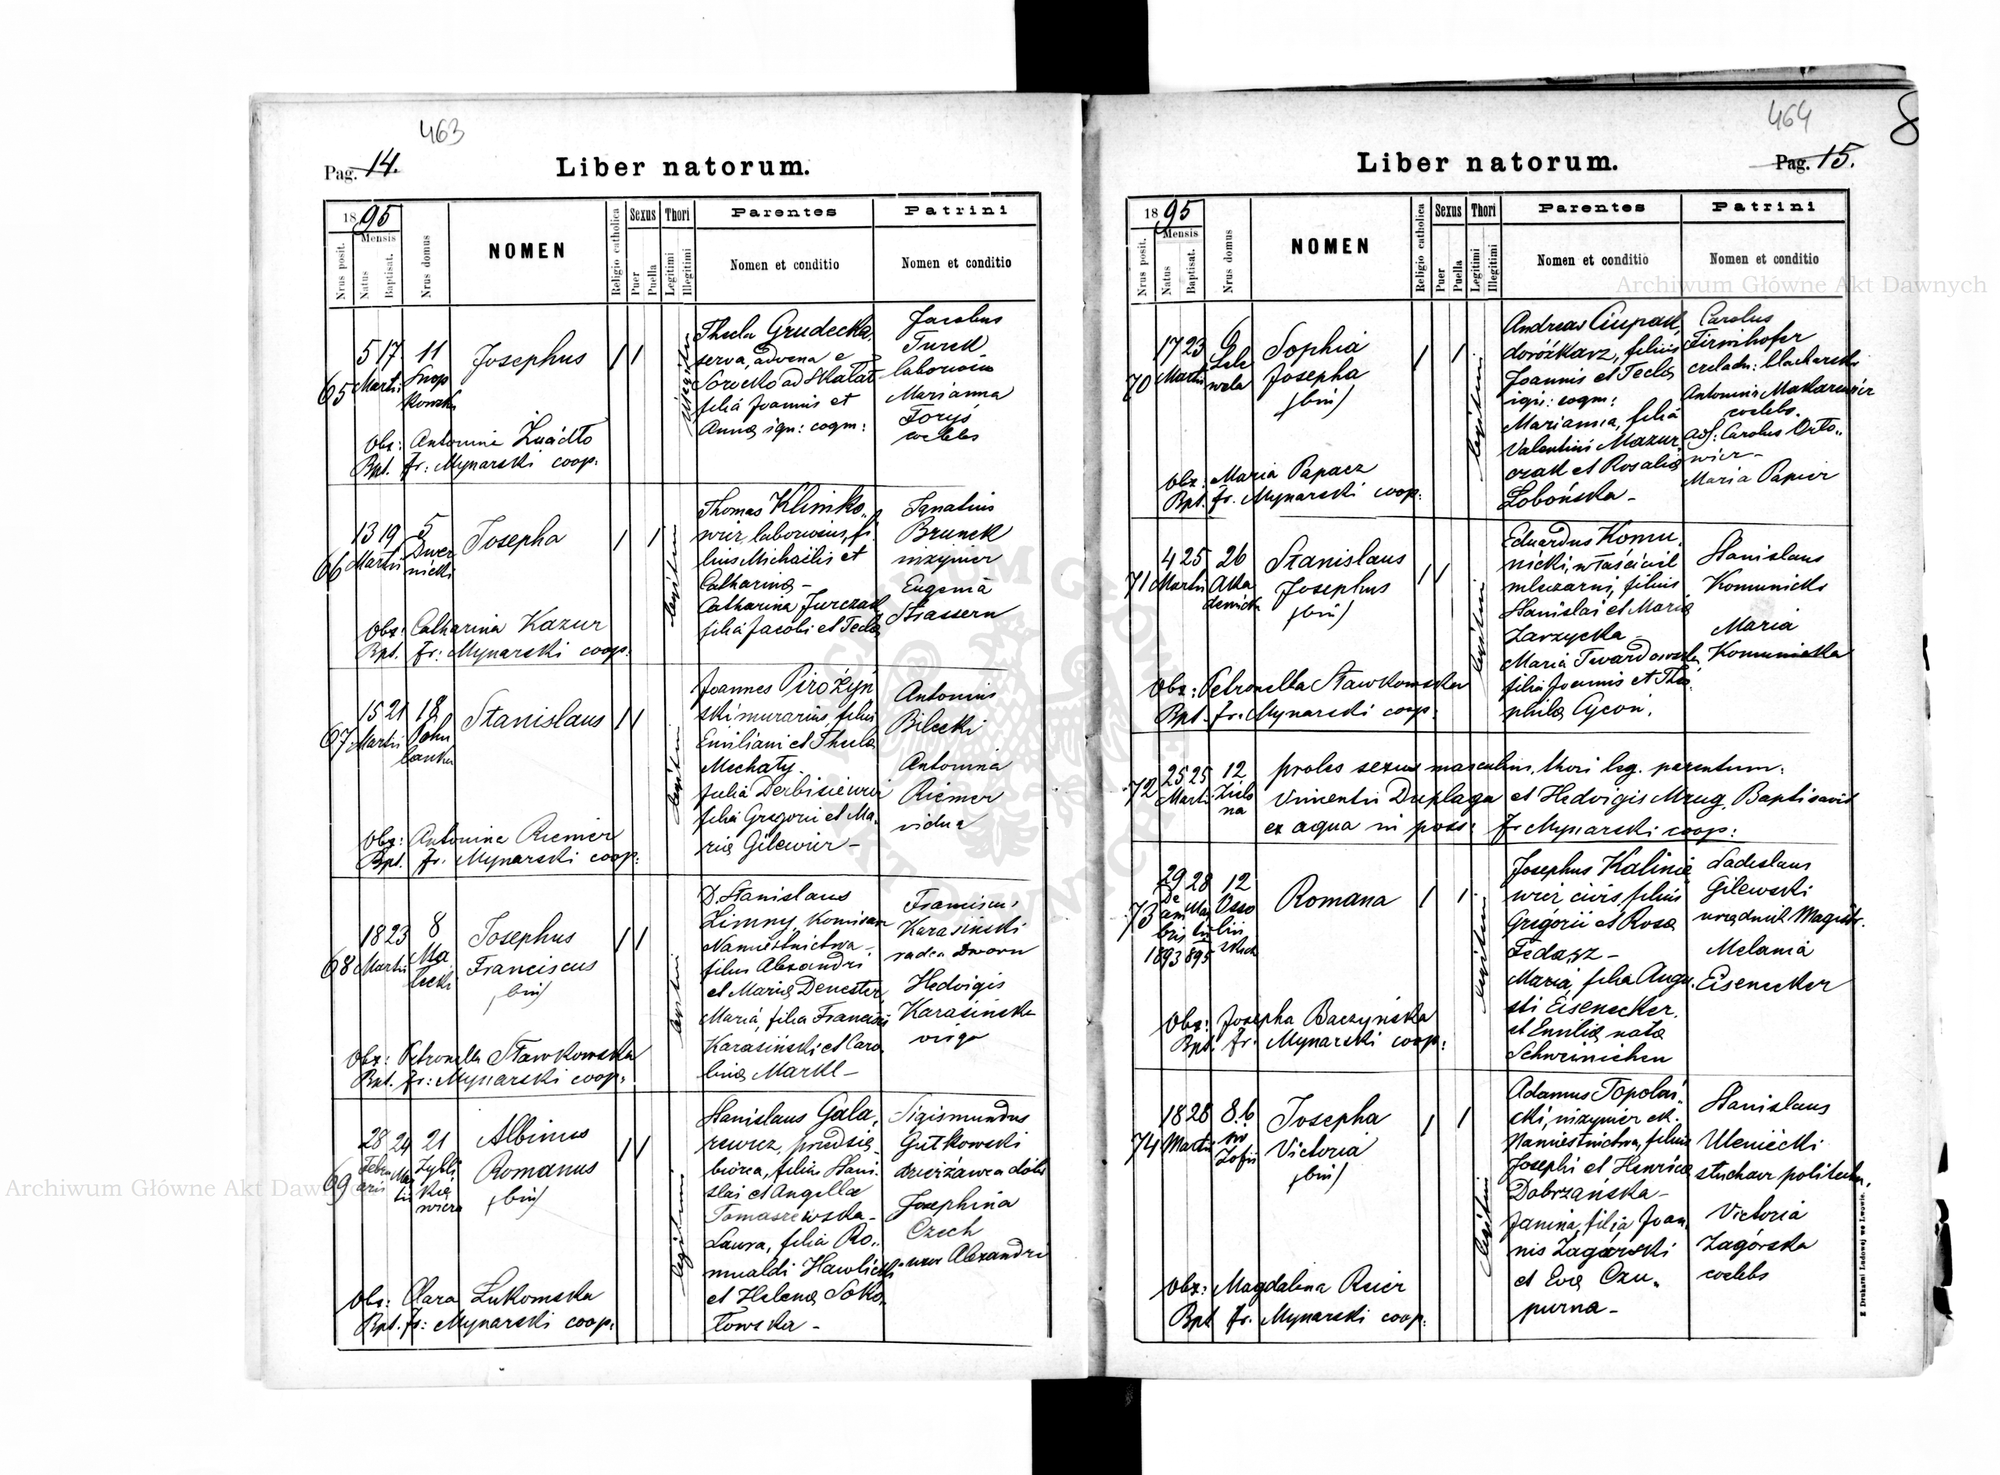 463
Pag. 14.
Liber natorum.
1895
Nrus posit.
Mensis
Natus
Baptisat.
Nrus domus
NOMEN
Religio catholica
Sexus
Puer
Puella
Thori
Legitimi
Illegitimi
Parentes
Nomen et conditio
Patrini
Nomen et conditio
65
5 17
Martii
11
Snop
kowski
Josephus
illegitimi
Thecla Grudecka,
serva, advena e
Sorocko ad Skałat
filia Joannis et
Anna ign: cogn:
Jacobus
Turek
laboriosus
Marianna
Toryś
coelebs
Obs: Antonina Żuádło
Bpt. fr: Mynarski coop:
66
13 19
Martii
5
Dwer
nicki
Josepha
legitimi
Thomas Klimko„
wicz, laboriosus, fi
lius Michaelis et
Catharina –
Catharina Jurczak
filia Jacobi et Tecla
Ignatius
Brunek
inżynier
Eugenia
Strassern
Obs: Catharina Kazur
Bpt. fr: Mynarski coop:
67
15 21
Martii
18
Pohu
lanka
Stanislaus
legitimi
Joannes Pirożyń
ski murarius, filius
Emiliani et Thecla
Mechaty.
Julia Derbisiewicz
filia Gregorii et Ma„
ria Gilewicz –
Antonius
Bilecki
Antonina
Riemer
vidua
Obs: Antonina Riemer
Bpt. fr. Mynarski coop:
68
18 23
Martii
8
Ma
łecki
Josephus
Franciscus
(bin)
legitimi
D. Stanislaus
Zimny, Komisarz
Namiestnictwa –
filius Alexandri
et Maria Denester,
Maria, filia Francisci
Karasiński et Caro„
lina Markl –
Franciscus
Karasiński
radca Dworu
Hedvigis
Karasińska
virgo
Obs: Petronella Stawkowska
Bpt. fr: Mynarski coop:
69
28 24
Febru
arii
Mar
tii
21
Zybli
kie
wicza
Albinus
Romanus
(bin)
legitimi
Stanislaus Gała„
rewicz, przedsię
biorca, filius Stani„
slai et Angella
Tomaszewska –
Laura, filia Ro„
mualdi Hawlicki
et Helena Soko„
łowska –
Sigismundus
Gutkowski
dzierżawca dóbr
Josephina
Czech
uxor Alexandri
Obs: Clara Łukomska
Bpt. fr: Mynarski coop:
464
8
Pag. 15.
Liber natorum.
1895
Nrus posit.
Mensis
Natus
Baptisat.
Nrus domus
NOMEN
Religio catholica
Sexus
Puer
Puella
Thori
Legitimi
Illegitimi
Parentes
Nomen et conditio
Patrini
Nomen et conditio
70
17 23
Martii
6
Lele
wela
Sophia
Josepha
(bin)
legitimi
Andreas Ciupak,
doróżkarz, filius
Joannis et Tecla
ign: cogn:
Marianna, filia
Valentini Mazur
czak et Rosalia
Łobońska –
Carolus
Firnhofer
czeladn: blacharski
Antonina Makarewicz
coelebs.
Ass: Carolus Orto„
wicz –
Maria Papier
Obs: Maria Papacz
Bpt. fr. Mynarski coop:
71
4 25
Martii
26
Aka
demicka
Stanislaus
Josephus
(bin)
legitimi
Eduardus Komu„
nicki, właściciel
mleczarni, filius
Stanislai et Maria
Zarzycka –
Maria Twardowska
filia Joannis et Theo„
phila Cycoń.
Stanislaus
Komunicki
Maria
Komunicka
Obs: Petronella Stawkowska
Bpt. fr: Mynarski coop:
72
25 25
Martii
12
Zielo
na
proles sexus masculini, thori leg. parentum:
Vincentii Duplaga et Hedvigis Mzug. Baptisavit
ex aqua in poss: fr Mynarski coop:
73
29 28
De
cem
bris
1893
Mar
tii
895
12
Osso
liń
skich
Romana
legitimi
Josephus Kalinie
wicz civis, filius
Gregorii et Rosa
Fedasz –
Maria, filia Augu„
sti Eisenecker,
et Emilia nata
Schweinichen
Ladislaus
Gilewski
urzędnik Magistr.
Melania
Eisenecker
Obs: Josepha Baczyńska
Bpt. fr. Mynarski coop:
74
18 28
Martii
8.b
św
Zofii
Josepha
Victoria
(bin)
legitimi
Adamus Topolni„
cki, inżynier ck.
Namiestnictwa, filius
Josephi et Henrica
Dobrzańska –
Janina, filia Joan„
nis Zagórski
et Eva Czu„
purna –
Stanislaus
Uleniecki
słuchacz politechn.
Victoria
Zagórska
coelebs
Obs: Magdalena Reier
Bpt fr. Mynarski coop:
Z Drukarni Ludowej we Lwowie.
Archiwum Główne Akt Dawnych
Archiwum Główne Akt Dawnych